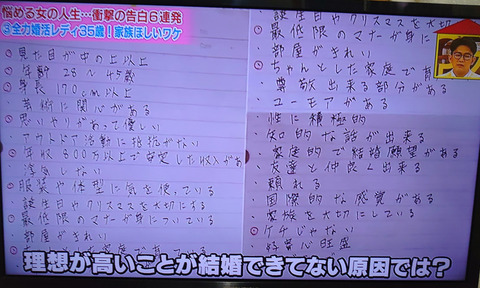 悩める女の人生…衝撃の告白6連発
③全力婚活レディ35歳!家族ほしいワケ
見た目が中の上以上
年齢 28〜45歳
身長 170cm以上
芸術に関心がある
思いやりがあって優しい
アウトドア活動に抵抗がない
年収 600万以上で安定した収入がある
浮気しない
服装や体型に気を使っている
誕生日やクリスマスを大切にする
最低限のマナーが身についている
部屋がきれい
誕生日やクリスマスを大切
最低限のマナーが身に
部屋がきれい
ちゃんとした家庭で育
尊敬出来る部分がある
ユーモアがある
性に積極的
知的な話が出来る
家庭的で結婚願望がある
友達と仲良く出来る
頼れる
国際的な感覚がある
家族を大切にしている
ケチじゃない
好奇心旺盛
理想が高いことが結婚できてない原因では?